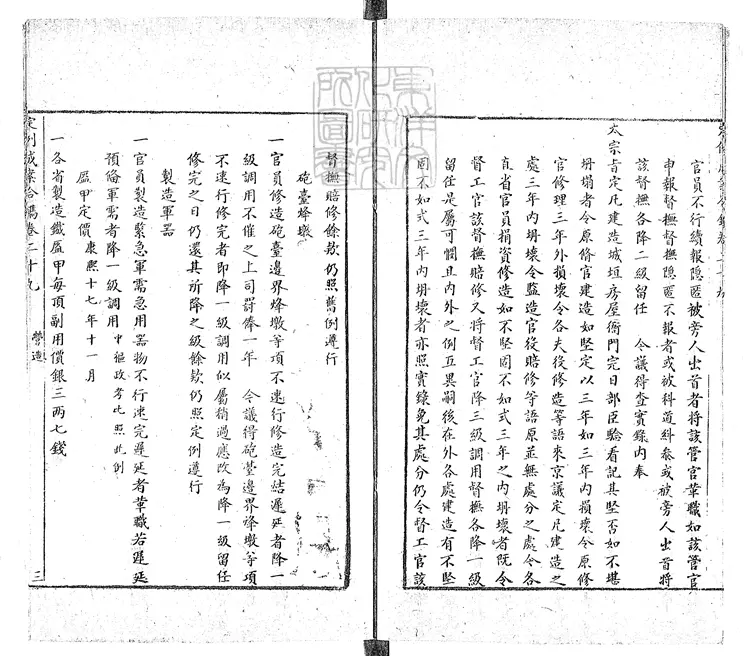 官員不行續報隱匿被旁人出首者將該管官革職如該管官
申報督撫督撫隱匿不報者或被科道糾參或被旁人出首將
該督撫各降二級留任　今議得查實錄內奉
太宗旨定凡建造城垣房屋衙門完日部臣驗看記其堅否如不堪
坍塌者令原修官建造如堅定以三年如三年內損壞令原修
官修理三年外損壞令各夫役修造等語來京議定凡建造之
處三年內坍壞令監造官役賠修等語原並無處分之處令各
直省官員捐資修造如不堅固不如式三年之內坍壞者既令
督工官該督撫賠修又將督工官降三級調用督撫各降一級
留任是屬可憫且內外之例互異嗣後在外各處建造有不堅
固不如式三年內坍壞者亦照實錄免其處分仍令督工官該
督撫賠修餘欵仍照舊例遵行
砲臺烽墩
一官員修造砲臺邊界烽墩等項不速行修造完結遲延者降一
級調用不催之上司罰俸一年　今議得砲臺邊界烽墩等項
不速行修完者即降一級調用似屬稍過應改為降一級留任
修完之日仍還其所降之級餘欵仍照定例遵行
製造軍器
一官員製造緊急軍需急用器物不行速完遲延者革職若遲延
預備軍需者降一級調用中樞政考比照此例
盔甲定價康熙十七年十一月
一各省製造鐵盔甲每頂副用價銀三兩七錢
定例成案合鐫卷二十九　營造　三